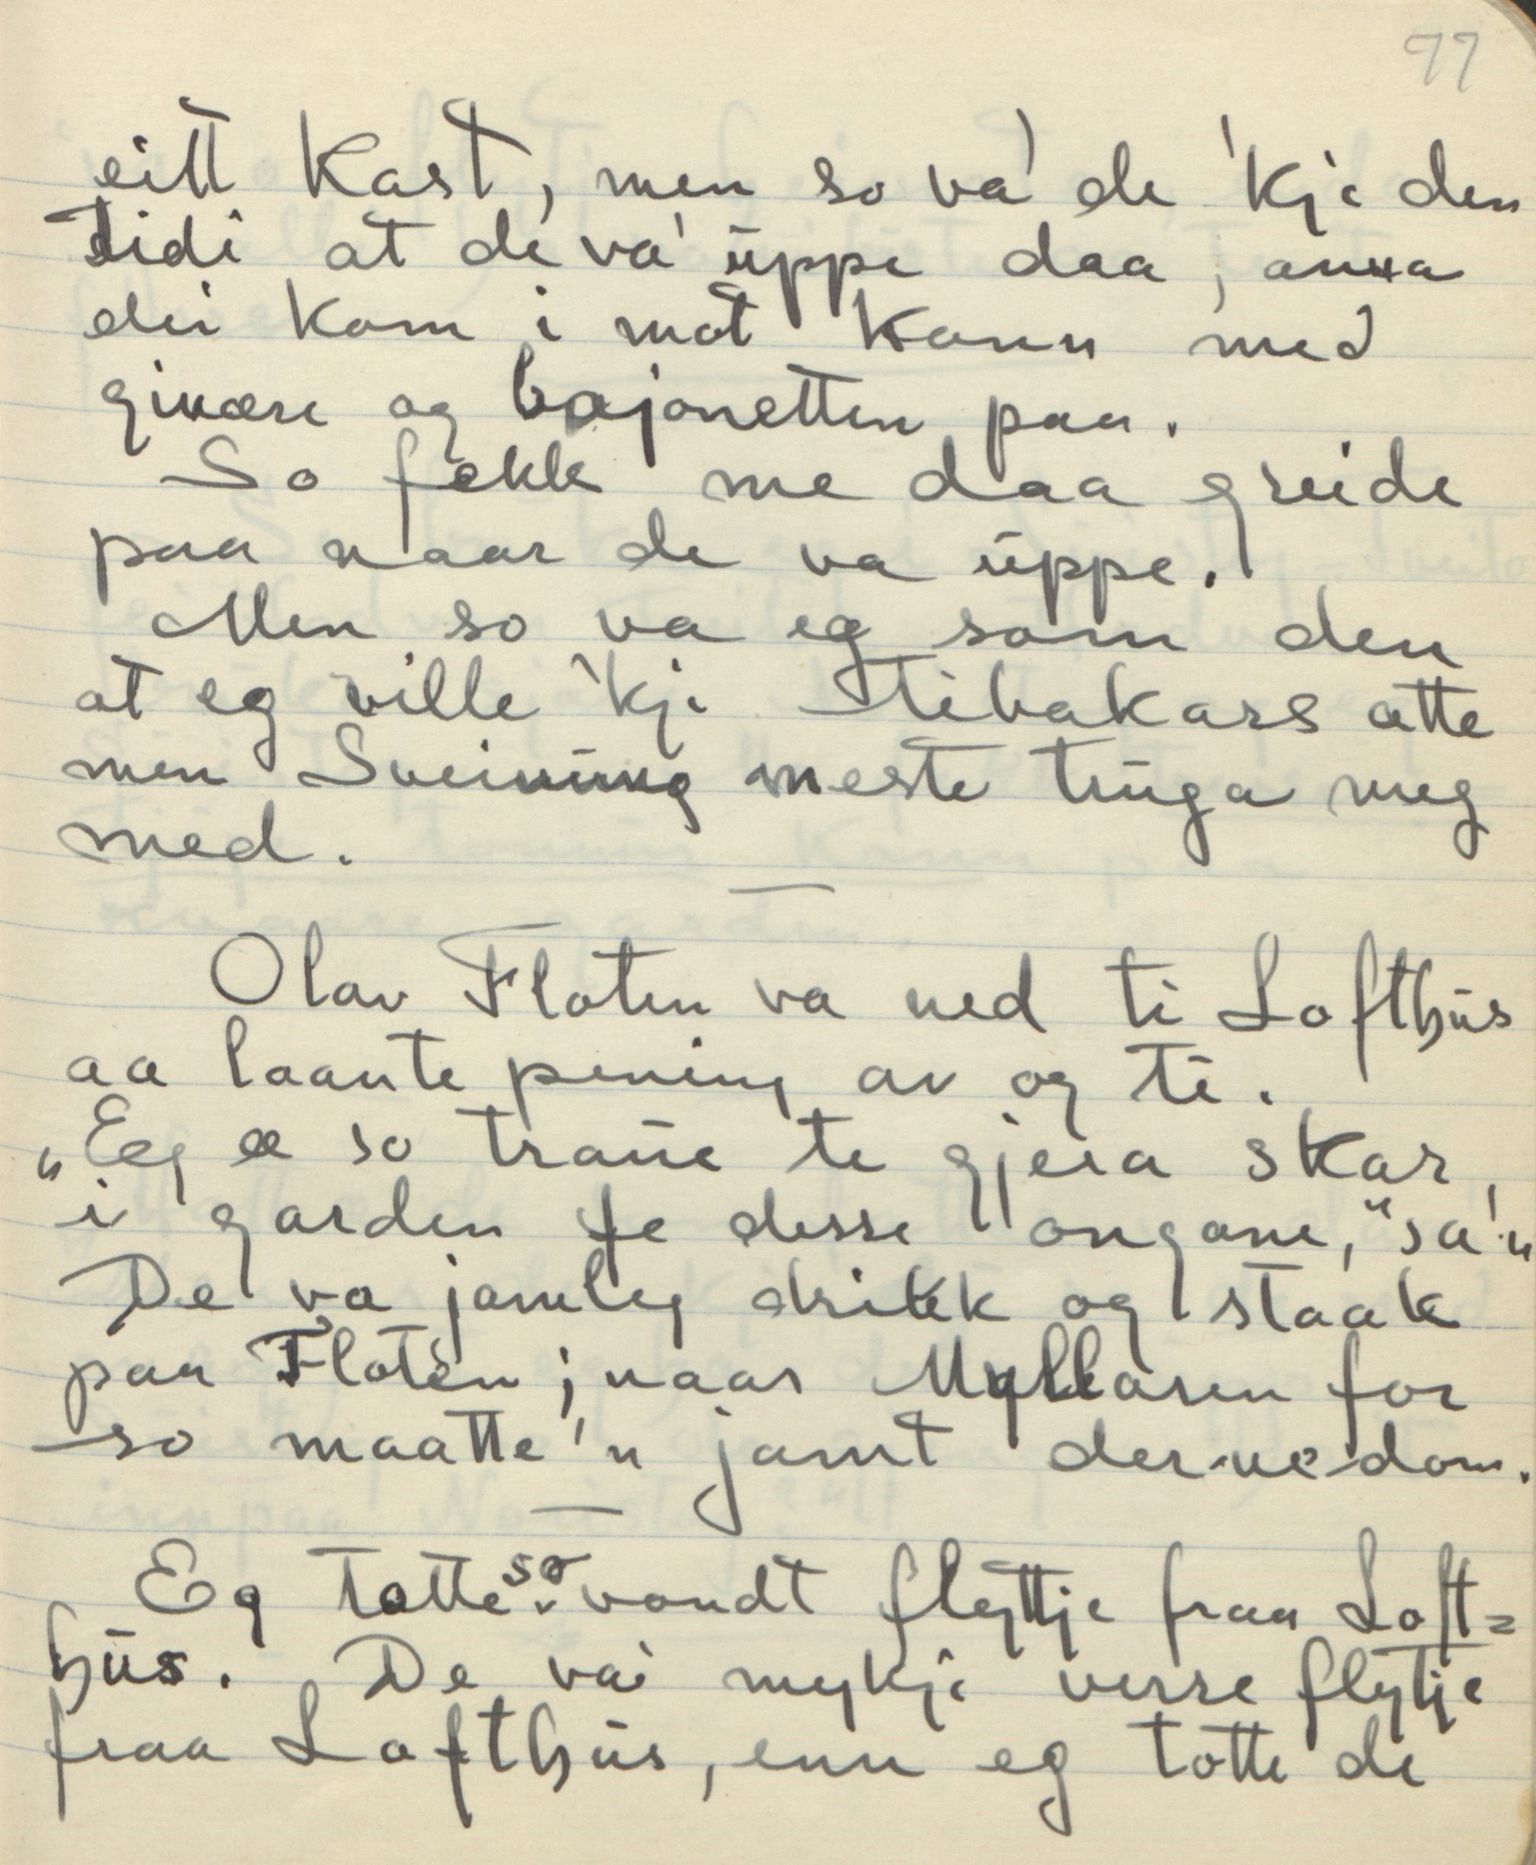 77
eitt Kast, men so va' de 'kje den
tidi at de va' uppe daa, anna
dei kom i mot konn med
givære og bajonetten paa.
So fekk me daa greide
paa naar de va uppe.
Men so va eg som den
at eg ville 'kje tibakars atte
men Sveinung meste truga meg
med.
Olav Floten va ned ti Lofthus
aa laante pening av og te.
"Eg æ so traue te gjera skar,
i garden fe desse ongane," sa'n
De va jamleg drikk og staak
paa Floten; naar Myllaren for
so maatte 'n jamt der nedom.
Eg totte so vondt flyttje fraa Loft=
hus. De va mykje verre flytje
fraa Lofthus, enn eg totte de